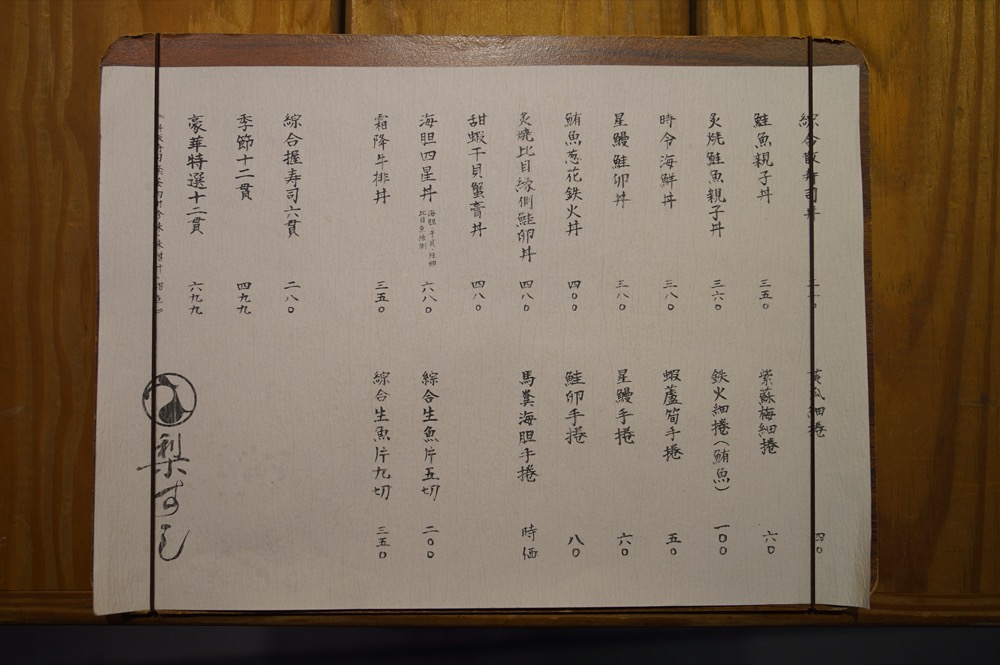 綜合散寿司丼
鮭魚親子丼 三五〇
炙燒鮭魚親子丼 三六〇
時令海鮮丼 三八〇
星鰻鮭卵丼 三八〇
鮪魚葱花鉄火丼 四〇〇
炙燒比目緣側鮭卵丼 四八〇
甜蝦干貝蟹膏丼 四八〇
海胆四星丼 海胆、干貝、鮭卵 比目魚緣側 六八〇
霜降牛排丼 三五〇
綜合握寿司六貫 二八〇
季節十二貫 四九九
豪華特選十二貫 六九九
黃瓜細捲 四〇
紫蘇梅細捲 六〇
鉄火細捲（鮪魚） 一〇〇
蝦蘆筍手捲 五〇
星鰻手捲 六〇
鮭卵手捲 八〇
馬糞海胆手捲 時価
綜合生魚片五切 二〇〇
綜合生魚片九切 三五〇
梨すし